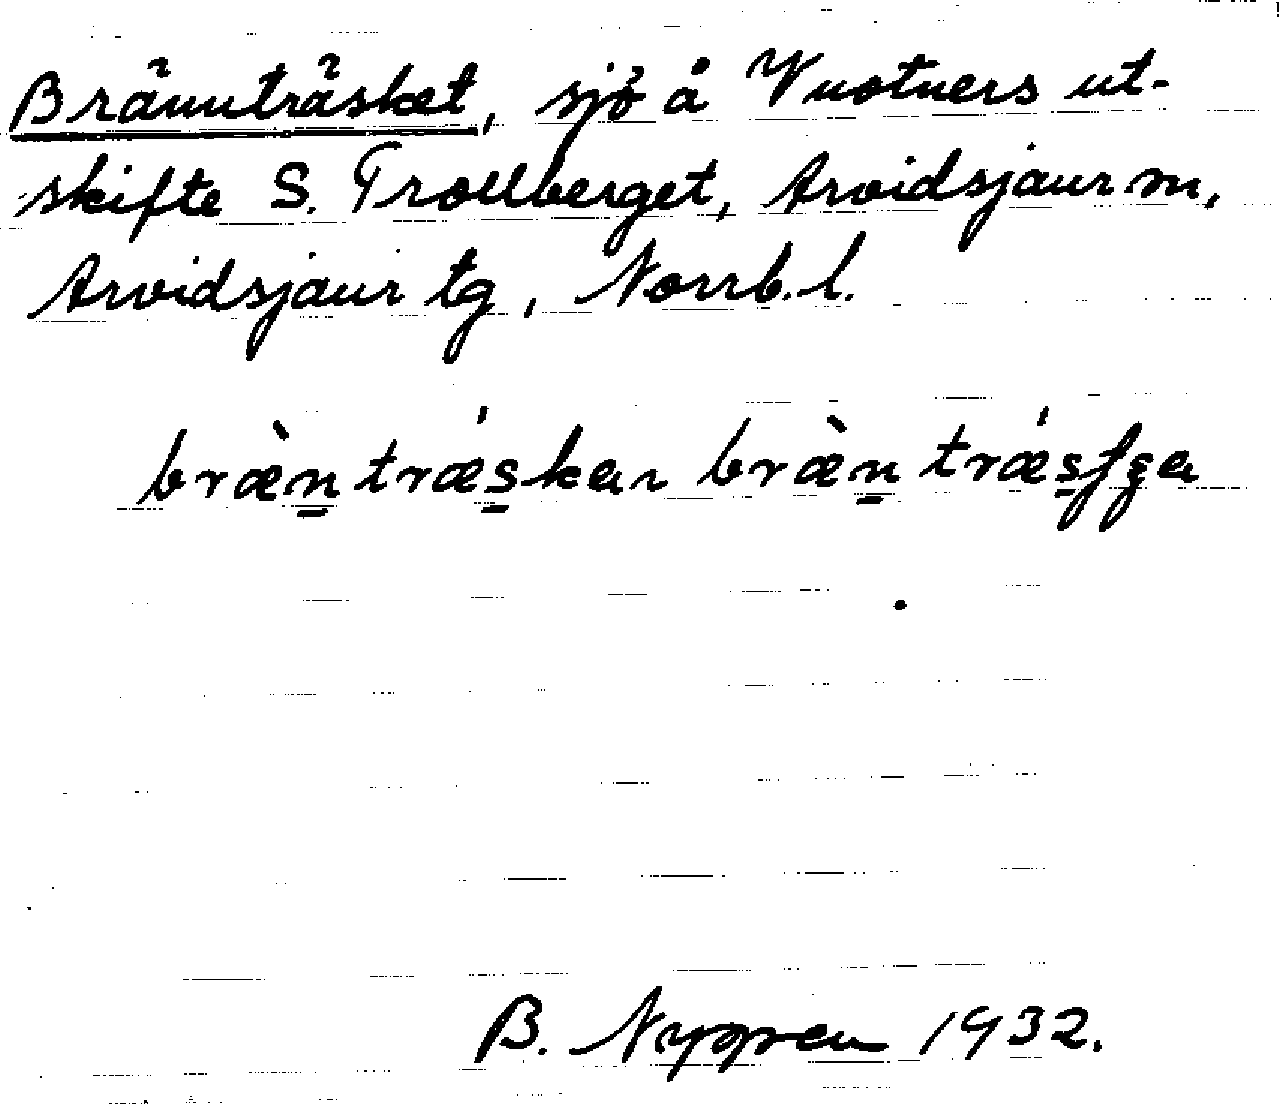 Brännträsket, sjö å Vuotners ut-
skifte S. Trollberget, Arvidsjaur sn,
Arvidsjaur tg, Norrb. l.
bræ̀n trǽskan bræ̀n trǽsʃɕen
B. Nygren 1932.